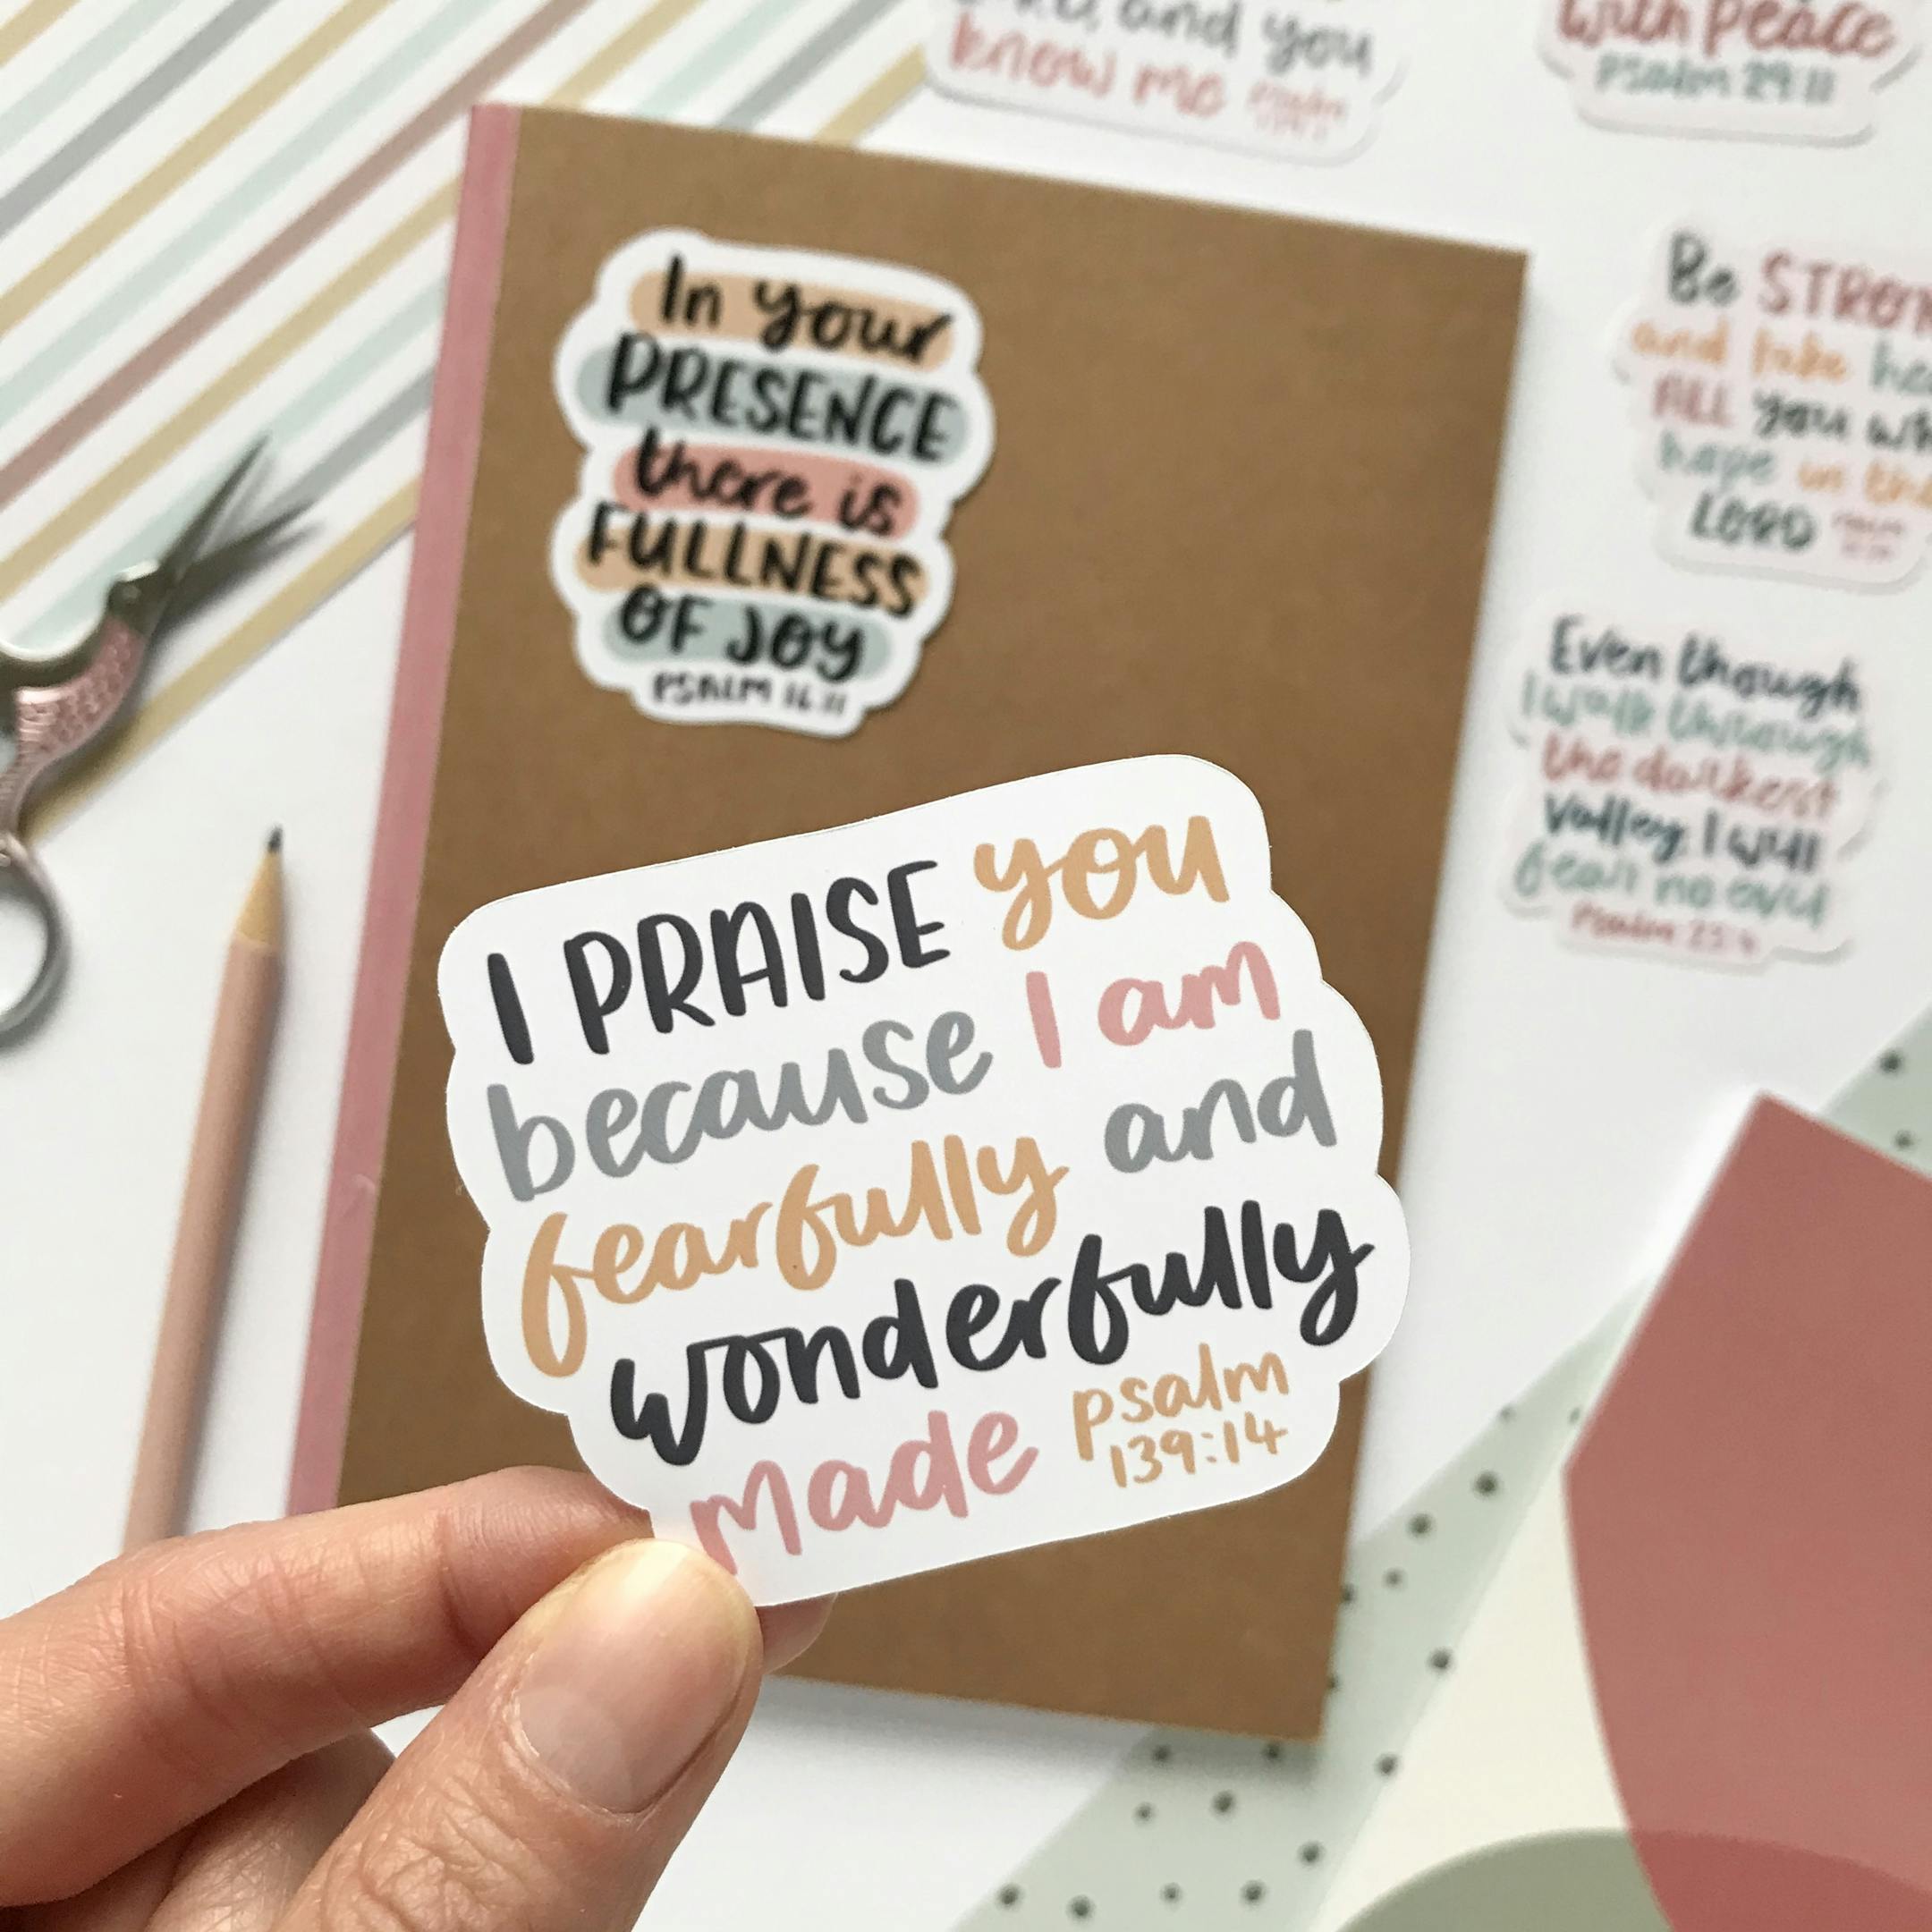 and you
know me
with Peace
Psalm 29:11
In your
PRESENCE
there is
FULLNESS
OF JOY
PSALM 16:11
Be STRON
and take hea
ALL you wh
hope in the
LORD
Even though
I walk through
the darkest
valley, I will
fear no evil
Psalm 23:4
I PRAISE you
because I am
fearfully and
wonderfully
made psalm
139:14